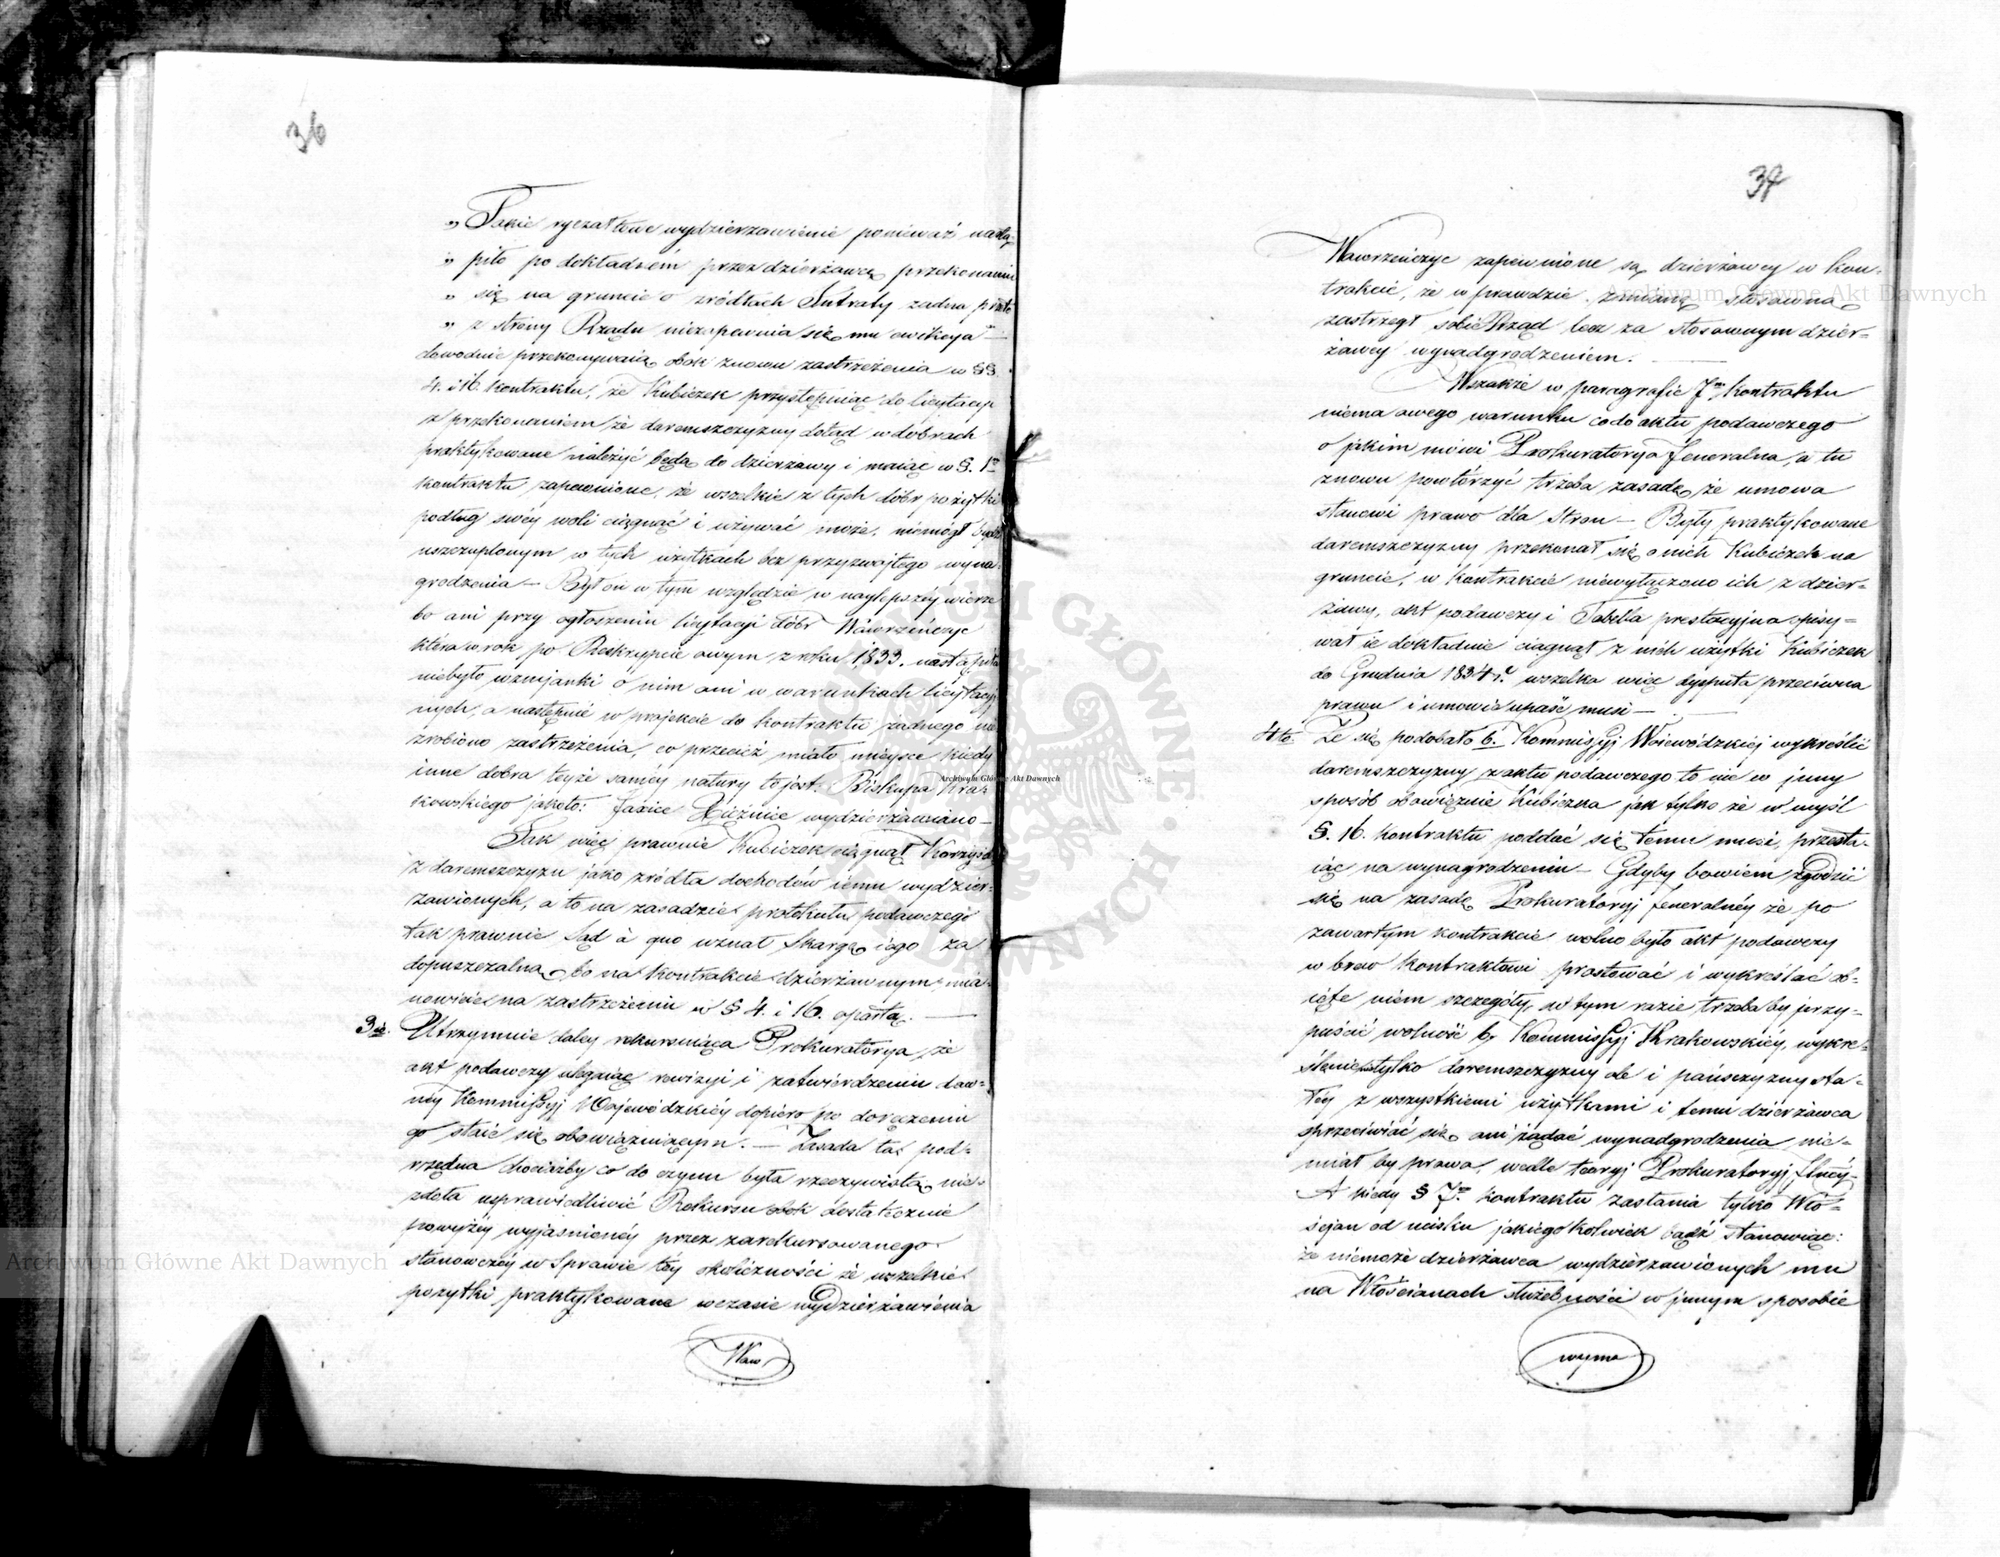 36
„ Takie ryczałtowe wydzierzawienie ponieważ nastą-
„ piło po dokładném przez dzierżawcę przekonaniu
„ się na gruncie o zródłach Intraty żadna przeto
„ z strony Rządu niezapewnia się mu ewikcya" —
dowodnie przekonywaią obok znowu zastrzeżenia w §§.
4. i 16. kontraktu, że Kubiczek przystępuiąc do licytacyi
z przekonaniem że daremszczyzny dotąd w dobrach
praktykowane należyć będą do dzierzawy i maiąc w §. 1m
kontraktu zapewnione, że wszelkie z tych dóbr pożytki
podług swéy woli ciągnąć i używać może, niemógł bydź
uszczuplonym w tych użytkach bez przyzwoitego wyna-
grodzenia — Był on w tym względzie w naylepszéy wierze
bo ani przy ogłoszeniu licytacyi dóbr Wawrzeńczyc
która w rok po Reskrypcie owym z roku 1833. nastąpiła
niebyło wzmianki o nim ani w warunkach licytacyj
nych, a następnie w projekcie do kontraktu żadnego nie
zrobiono zastrzeżenia, co przecież miało miejsce kiedy
inne dobra teyże saméy natury to jest: Biskupa Kra-
kowskiego jakoto: Jaxice Rżżnice wydzierżawiano —
Jak więc prawnie Kubiczek ciągnął Korzyści
z daremszczyzn jako zródła dochodów iemu wydzier-
zawionych, a to na zasadzie protokułu podawczego
tak prawnie Sąd à quo uznał skargę iego za
dopuszczalną, bo na kontrakcie dzierżawnym, mia-
nowicie na zastrzeżeniu w § 4. i 16. opartą. —
3cie. Utrzymuie daley rekursuiąca Prokuratorya, że
akt podawczy ulegaiąc rewizyi i zatwierdzeniu daw-
néy Kommissyj Wojewódzkiéy dopiero po doręczeniu
go staie się obowiązuiącym. — Zasada ta pod-
rzędna chociażby co do czynu była rzeczywistą, nie-
zdoła usprawiedliwić Rekursu obok dostatecznie
powyżéy wyjaśnionéy przez zarekursowanego
stanowczéy w Sprawie téy okoliczności że wszelkie
pożytki praktykowane wczasie wydzierżawienia
Waw
37
Wawrzeńczyc zapewnione są dzierżawcy w kon-
trakcie, że w prawdzie zmianę stosowną
zastrzegł sobie Rząd lecz za stosownym dzier-
żawcy wynadgrodzeniem. —
Wszakże w paragrafie 7m kontraktu
niema owego warunku codo aktu podawczego
o jakim mówi Prokuratorya Jeneralna, a tu
znowu powtórzyć trzeba zasadę, że umowa
stanowi prawo dla Stron — Były praktykowane
daremszczyzny przekonał się o nich Kubiczek na
gruncie, w kontrakcie niewyłączono ich z dzier-
żawy, akt podawczy i Tabella prestacyjna opisy-
wał ie dokładnie ciągnął z nich użytki Kubiczek
do Grudnia 1834 r. wszelka więc dysputa przeciwna
prawu i umowie upaść musi —
4to. Że się podobało b. Kommissyj Woiewódzkiéj wykreślić
daremszczyzny z aktu podawczego to nie w jnny
sposób obowiązuie Kubiczka jak tylko że w myśl
§. 16. kontraktu poddać się temu musi, przesta-
iąc na wynagrodzeniu — Gdyby bowiem zgodzić
się na zasadę Prokuratoryj Jeneralnéy że po
zawartym kontrakcie wolno było akt podawczy
w brew kontraktowi prostować i wykreślać ob-
ięte niem szczegóły, w tym razie trzeba by przy-
puścić wolność b. Kommissyj Krakowskiéy, wykre-
ślenie nie tylko daremszczyzny ale i pańszczyzny sta-
łey z wszystkiemi użytkami i temu dzierżawca
sprzeciwiać się, ani żądać wynadgrodzenia nie-
miał by prawa, wedle teoryj Prokuratoryj Jlnéy —
A kiedy § 7m kontraktu zasłania tylko Wło-
ścjan od ucisku jakiegokolwiek bądź stanowiąc:
że niemoże dzierżawca wydzierzawionych mu
na Włościanach służebności w jnnym sposobie
wyma
Archiwum Główne Akt Dawnych
Archiwum Główne Akt Dawnych
Archiwum Główne Akt Dawnych